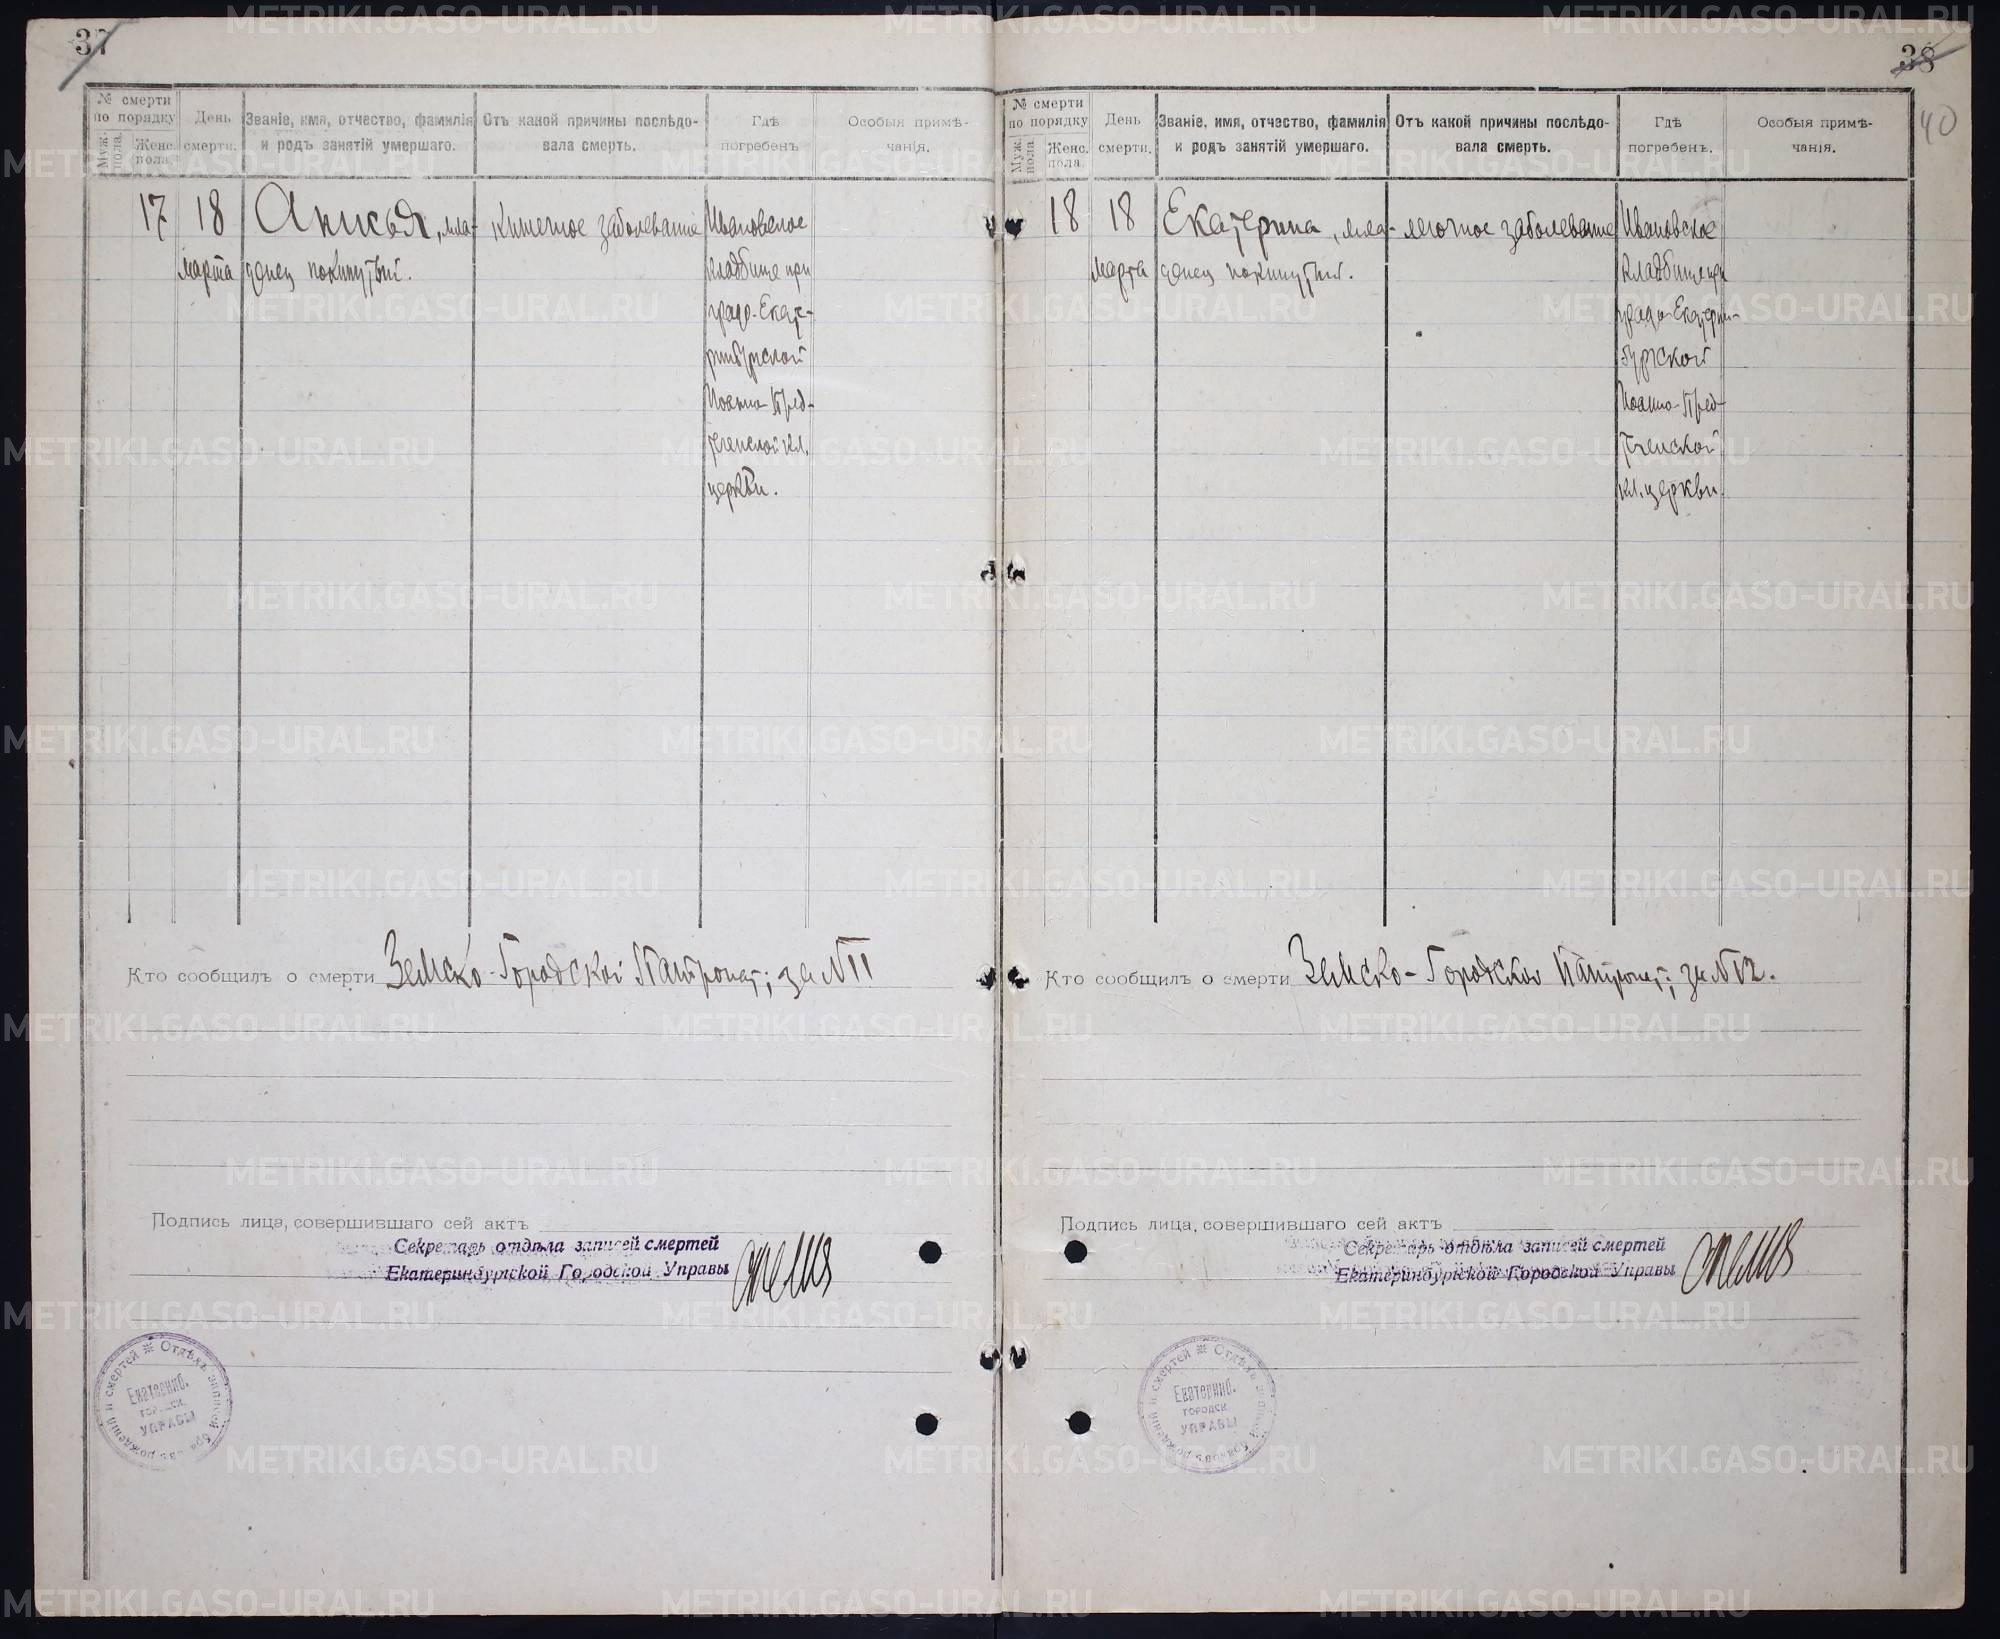 37
№ смерти
по порядку
Муж. пола.
Женс. пола.
День
смерти.
Званіе, имя, отчество, фамилія
и родъ занятій умершаго.
Отъ какой причины послѣдо-
вала смерть.
Гдѣ
погребенъ.
Особыя примѣ-
чанія.
17
18
марта
Анисья, мла-
денец покинутый.
Кишечное заболевание
Ивановское
кладбище при
градо-Екате-
ринбургской
Иоанно-Пред-
теченской кл.
церкви.
Кто сообщилъ о смерти Земско-Городской Патронат; за № 11
Подпись лица, совершившаго сей актъ
Секретарь отдѣла записей смертей
Екатеринбургской Городской Управы
Отдѣлъ записей браковъ, рожденій и смертей
Екатеринб.
городск.
УПРАВЫ
38
40
№ смерти
по порядку
Муж. пола.
Женс. пола.
День
смерти.
Званіе, имя, отчество, фамилія
и родъ занятій умершаго.
Отъ какой причины послѣдо-
вала смерть.
Гдѣ
погребенъ.
Особыя примѣ-
чанія.
18
18
марта
Екатерина, мла-
денец покинутый.
легочное заболевание
Ивановское
кладбище при
градо-Екатерин-
бургской
Иоанно-Пред-
теченской
кл. церкви.
Кто сообщилъ о смерти Земско-Городской Патронат; за № 12.
Подпись лица, совершившаго сей актъ
Секретарь отдѣла записей смертей
Екатеринбургской Городской Управы
Отдѣлъ записей браковъ, рожденій и смертей
Екатеринб.
городск.
УПРАВЫ
METRIKI.GASO-URAL.RU